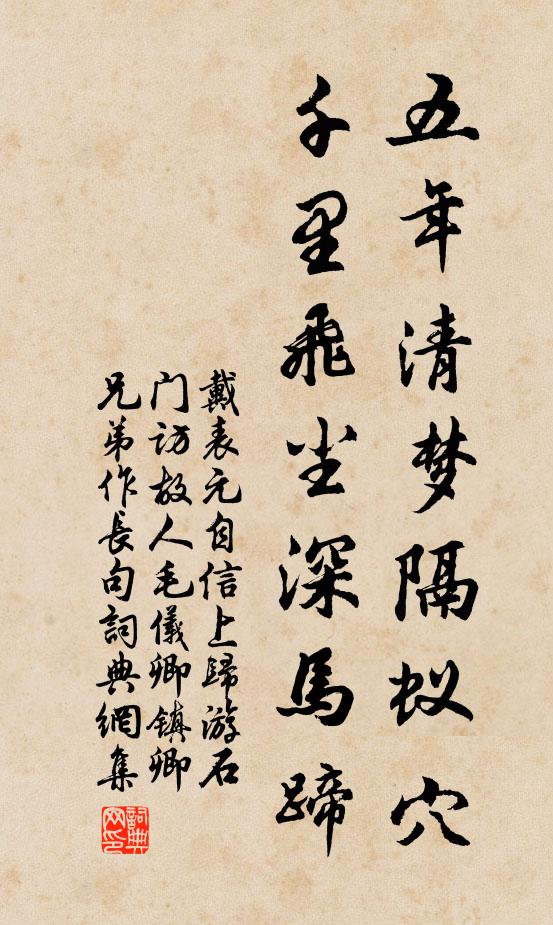 五年清梦隔蚁穴
千里飛尘深馬蹄
戴表元自信上歸游石
门访故人毛儀卿镇卿
兄弟作長句詞典網集
詞典网印